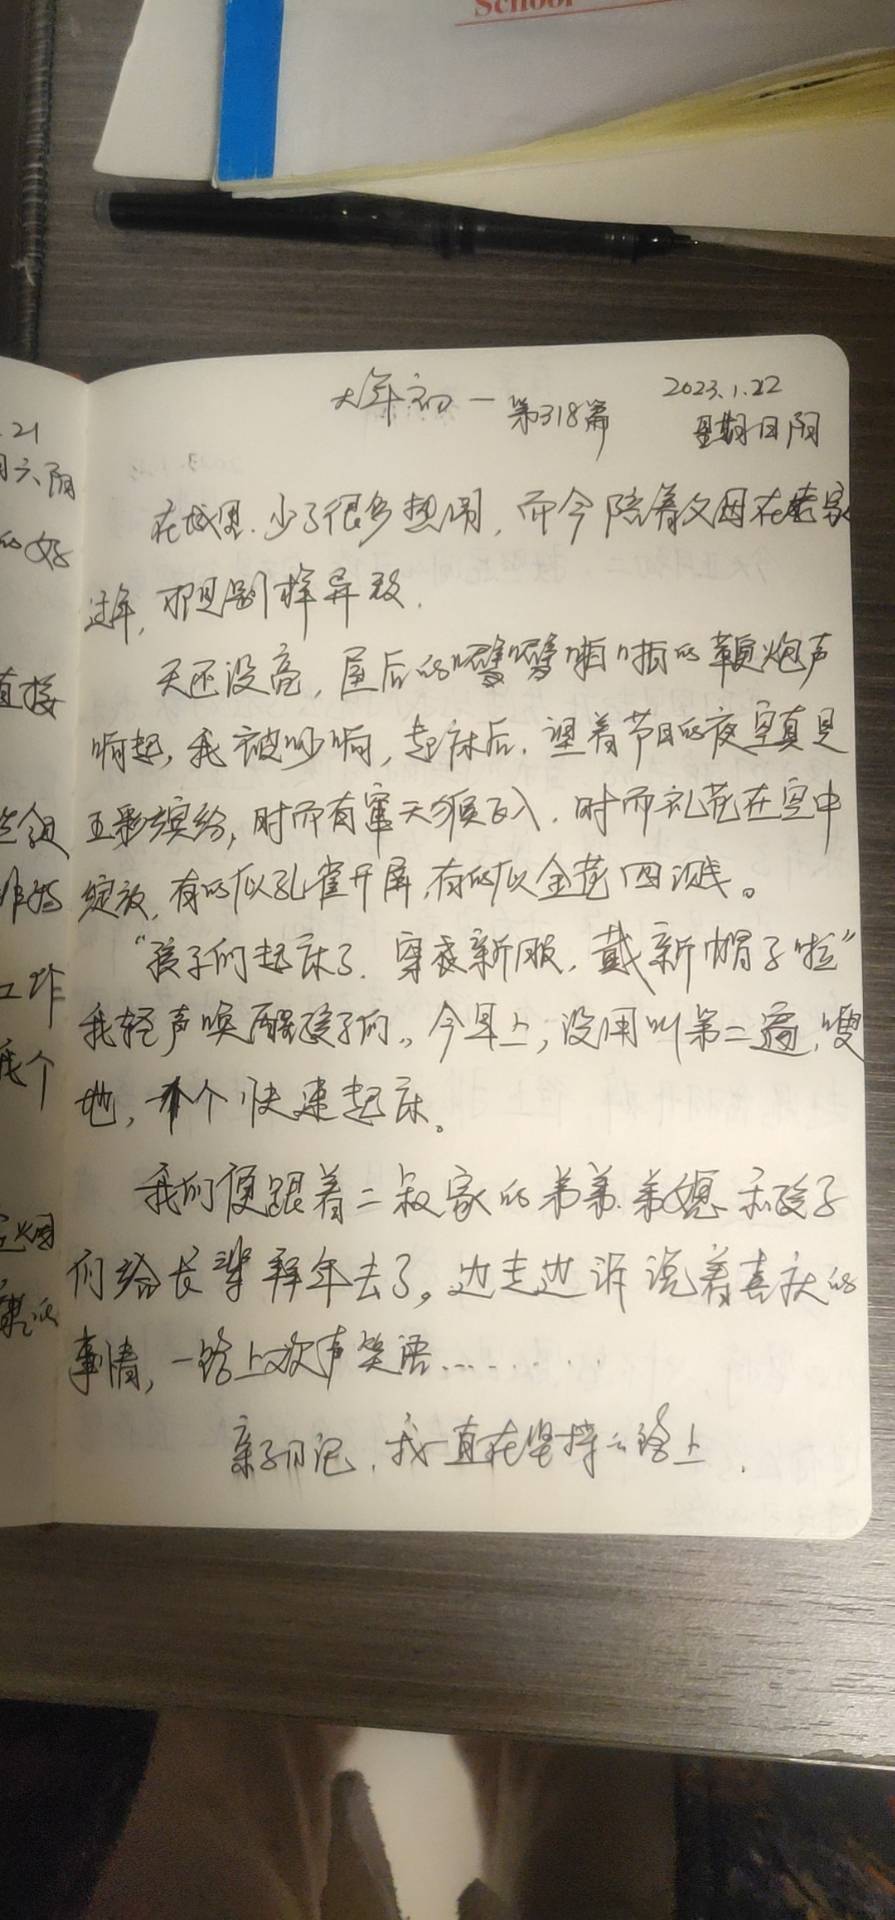 School
大年初一 第318篇 2023.1.22
星期日阴
在城里.少了很多热闹,而今陪着父母在老家
过年,那是别样异致.
天还没亮,屋后的噼噼啪啪的鞭炮声
响起,我被吵响,起床后.望着节日的夜空真是
五彩缤纷,时而有窜天猴飞入.时而礼花在空中
绽放,有的似孔雀开屏,有的似金花四溅。
“孩子们起床了.穿衣新服,戴新帽子啦”
我轻声唤醒孩子们。今早上,没用叫第二遍,嗖
地,个个快速起床。
我们便跟着二叔家的弟弟.弟媳和孩子
们给长辈拜年去了。边走边诉说着喜庆的
事情,一路上欢声笑语……
亲子日记,我一直在坚持的路上.
.21
六阴
的好
直接
工作
个